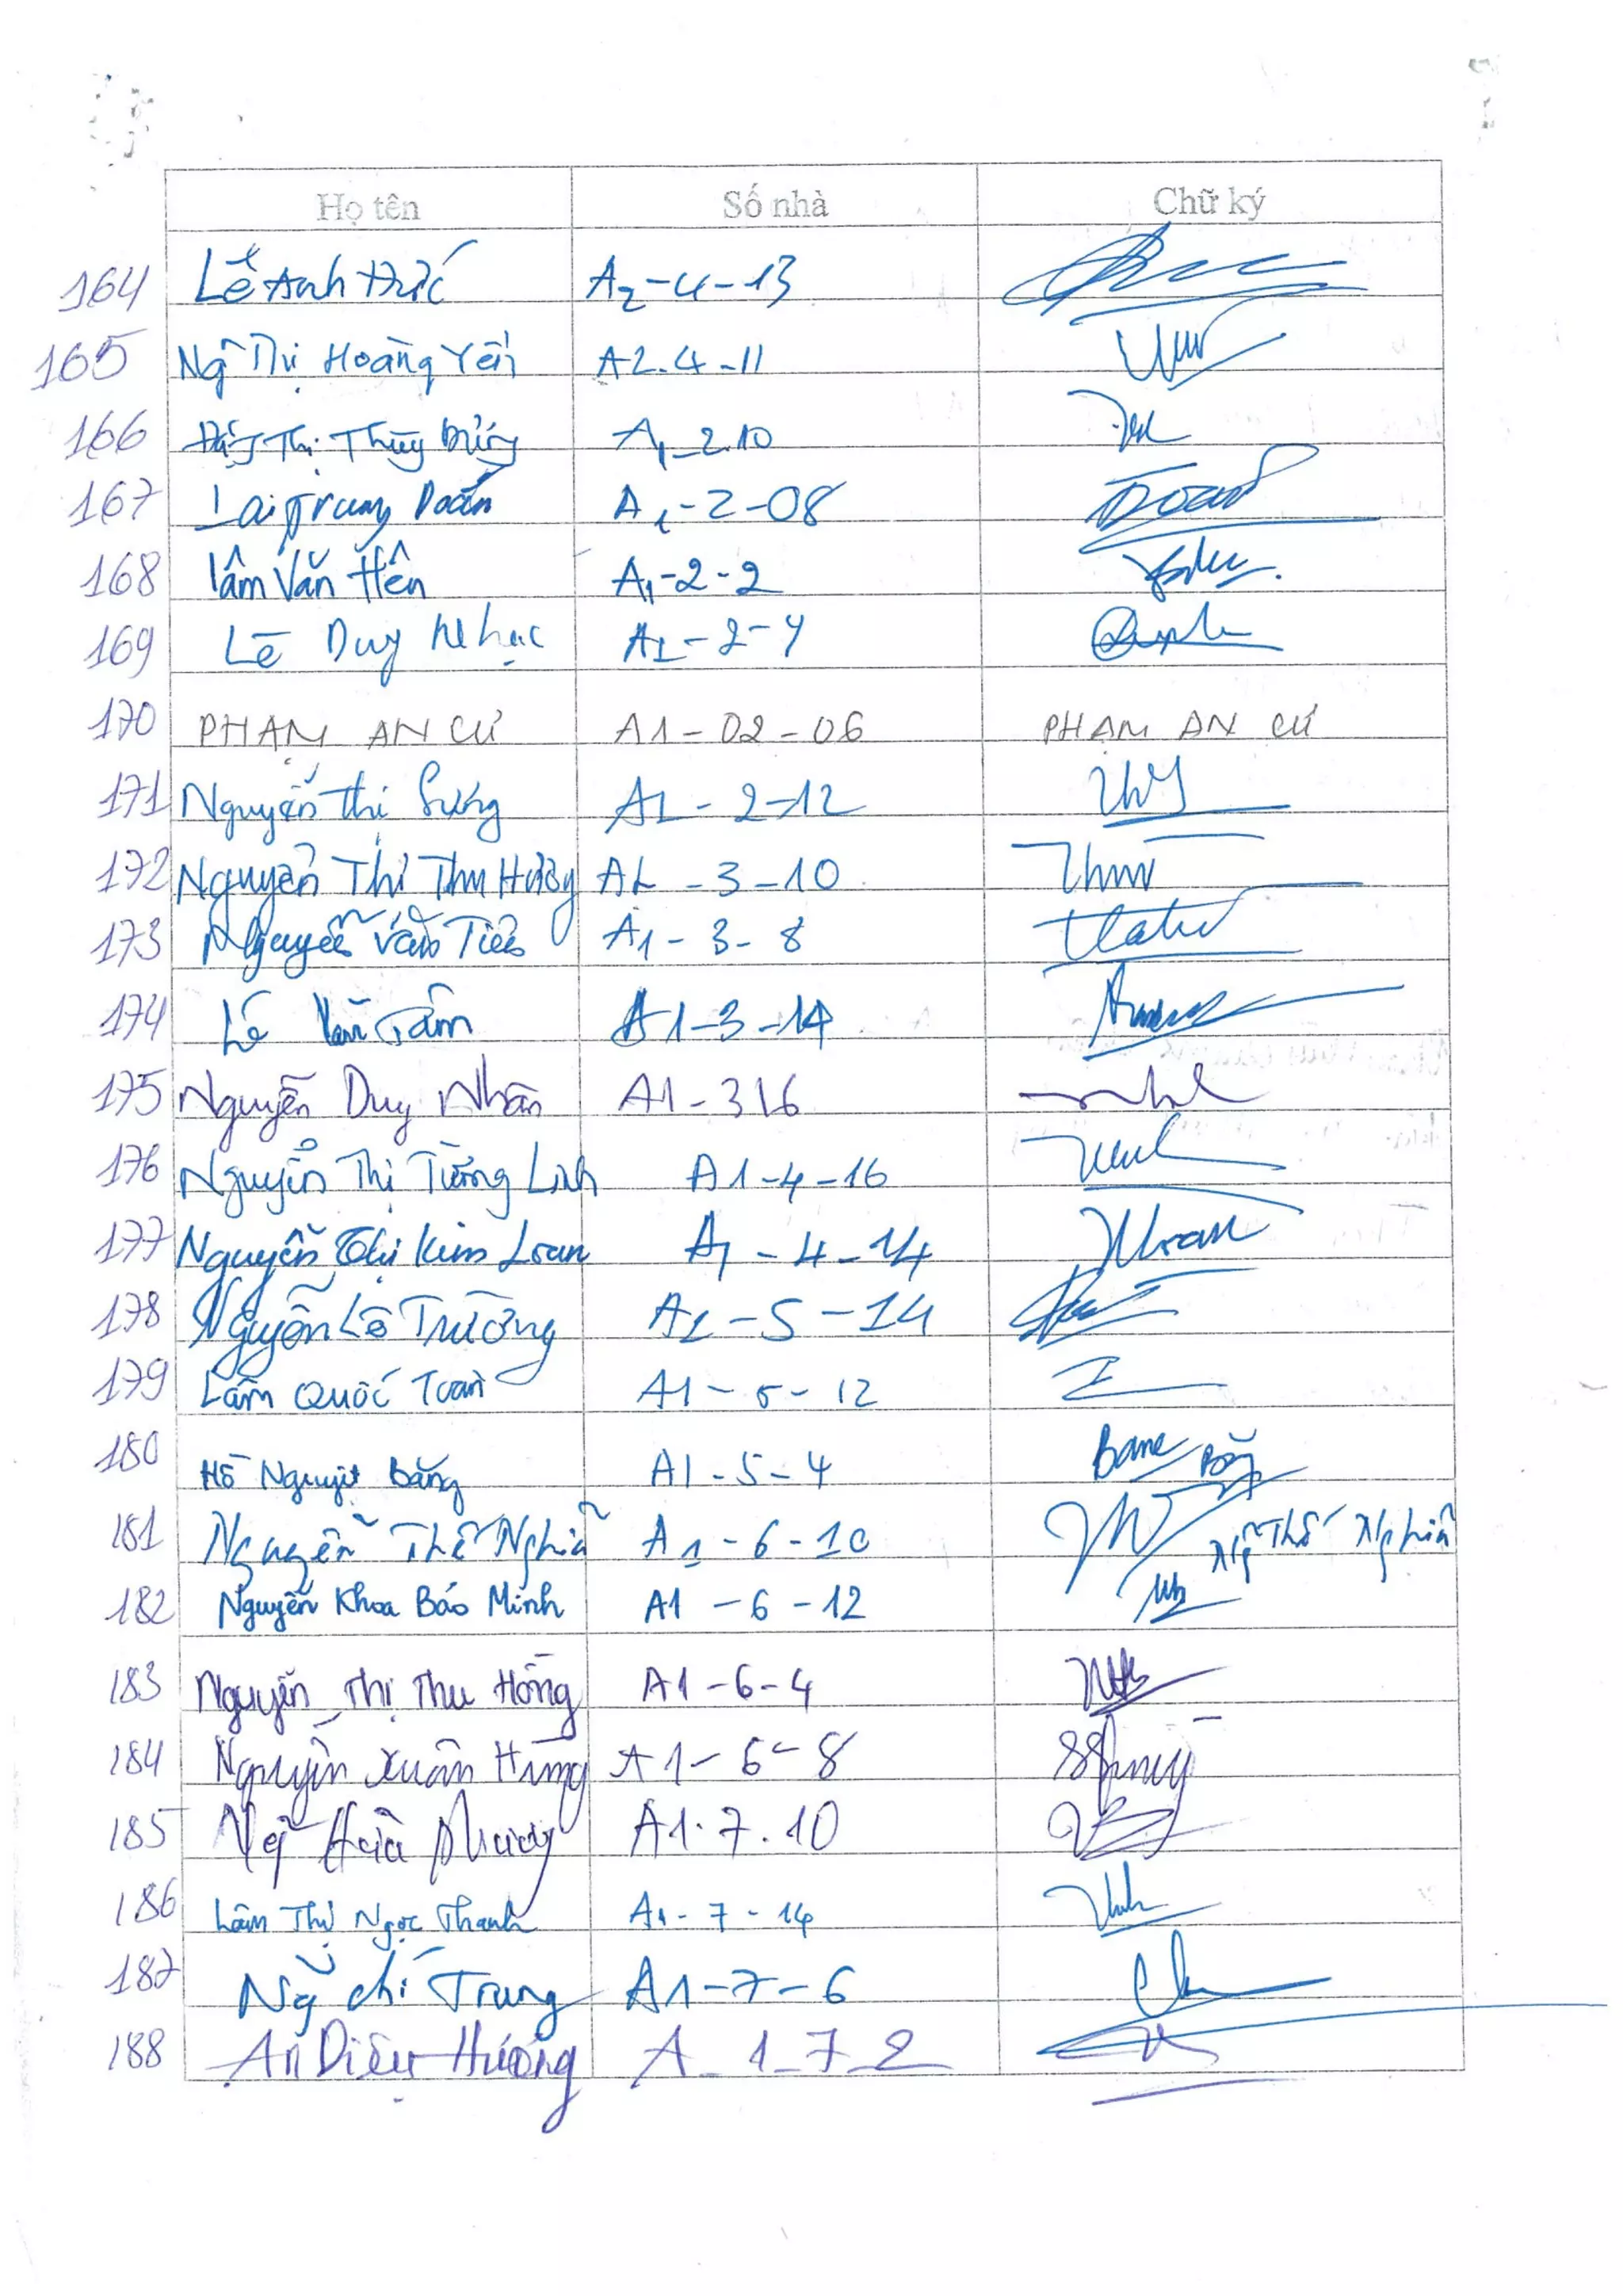 Họ tên Số nhà Chữ ký
164 Lê Anh Đức A2-4-13
165 Ngô Thị Hoàng Yến A2.4-11
166 Đặng Thị Thùy A1-2.10
167 Lại Trung Doãn A1-2-08
168 Lâm Văn Hên A1-2-2
169 Lê Duy Nhạc A1-2-4
170 PHẠM AN CƯ A1-02-06 PHẠM AN CƯ
171 Nguyễn Thị Sương A1-2-12
172 Nguyễn Thị Thu Hương A1-3-10
173 Nguyễn Văn A1-3-8
174 Lê Văn Tâm A1-3-14
175 Nguyễn Duy Nhân A1-316
176 Nguyễn Thị Tường Linh A1-4-16
177 Nguyễn Thị Kim Loan A1-4-14
178 Nguyễn Lê Trường A1-5-14
179 Lâm Quốc Toàn A1-5-12
180 Hồ Nguyệt Băng A1-5-4
181 Nguyễn Thế Nghĩa A1-6-10 Ng Thế Nghĩa
182 Nguyễn Khoa Bảo Minh A1-6-12
183 Nguyễn Thị Thu Hồng A1-6-4
184 Nguyễn Xuân Hùng A1-6-8
185 A1.7.10
186 Lâm Thị Ngọc Thanh A1-7-14
187 Ng Chí Trung A1-7-6
188 Diệu Hương A-1-7-2